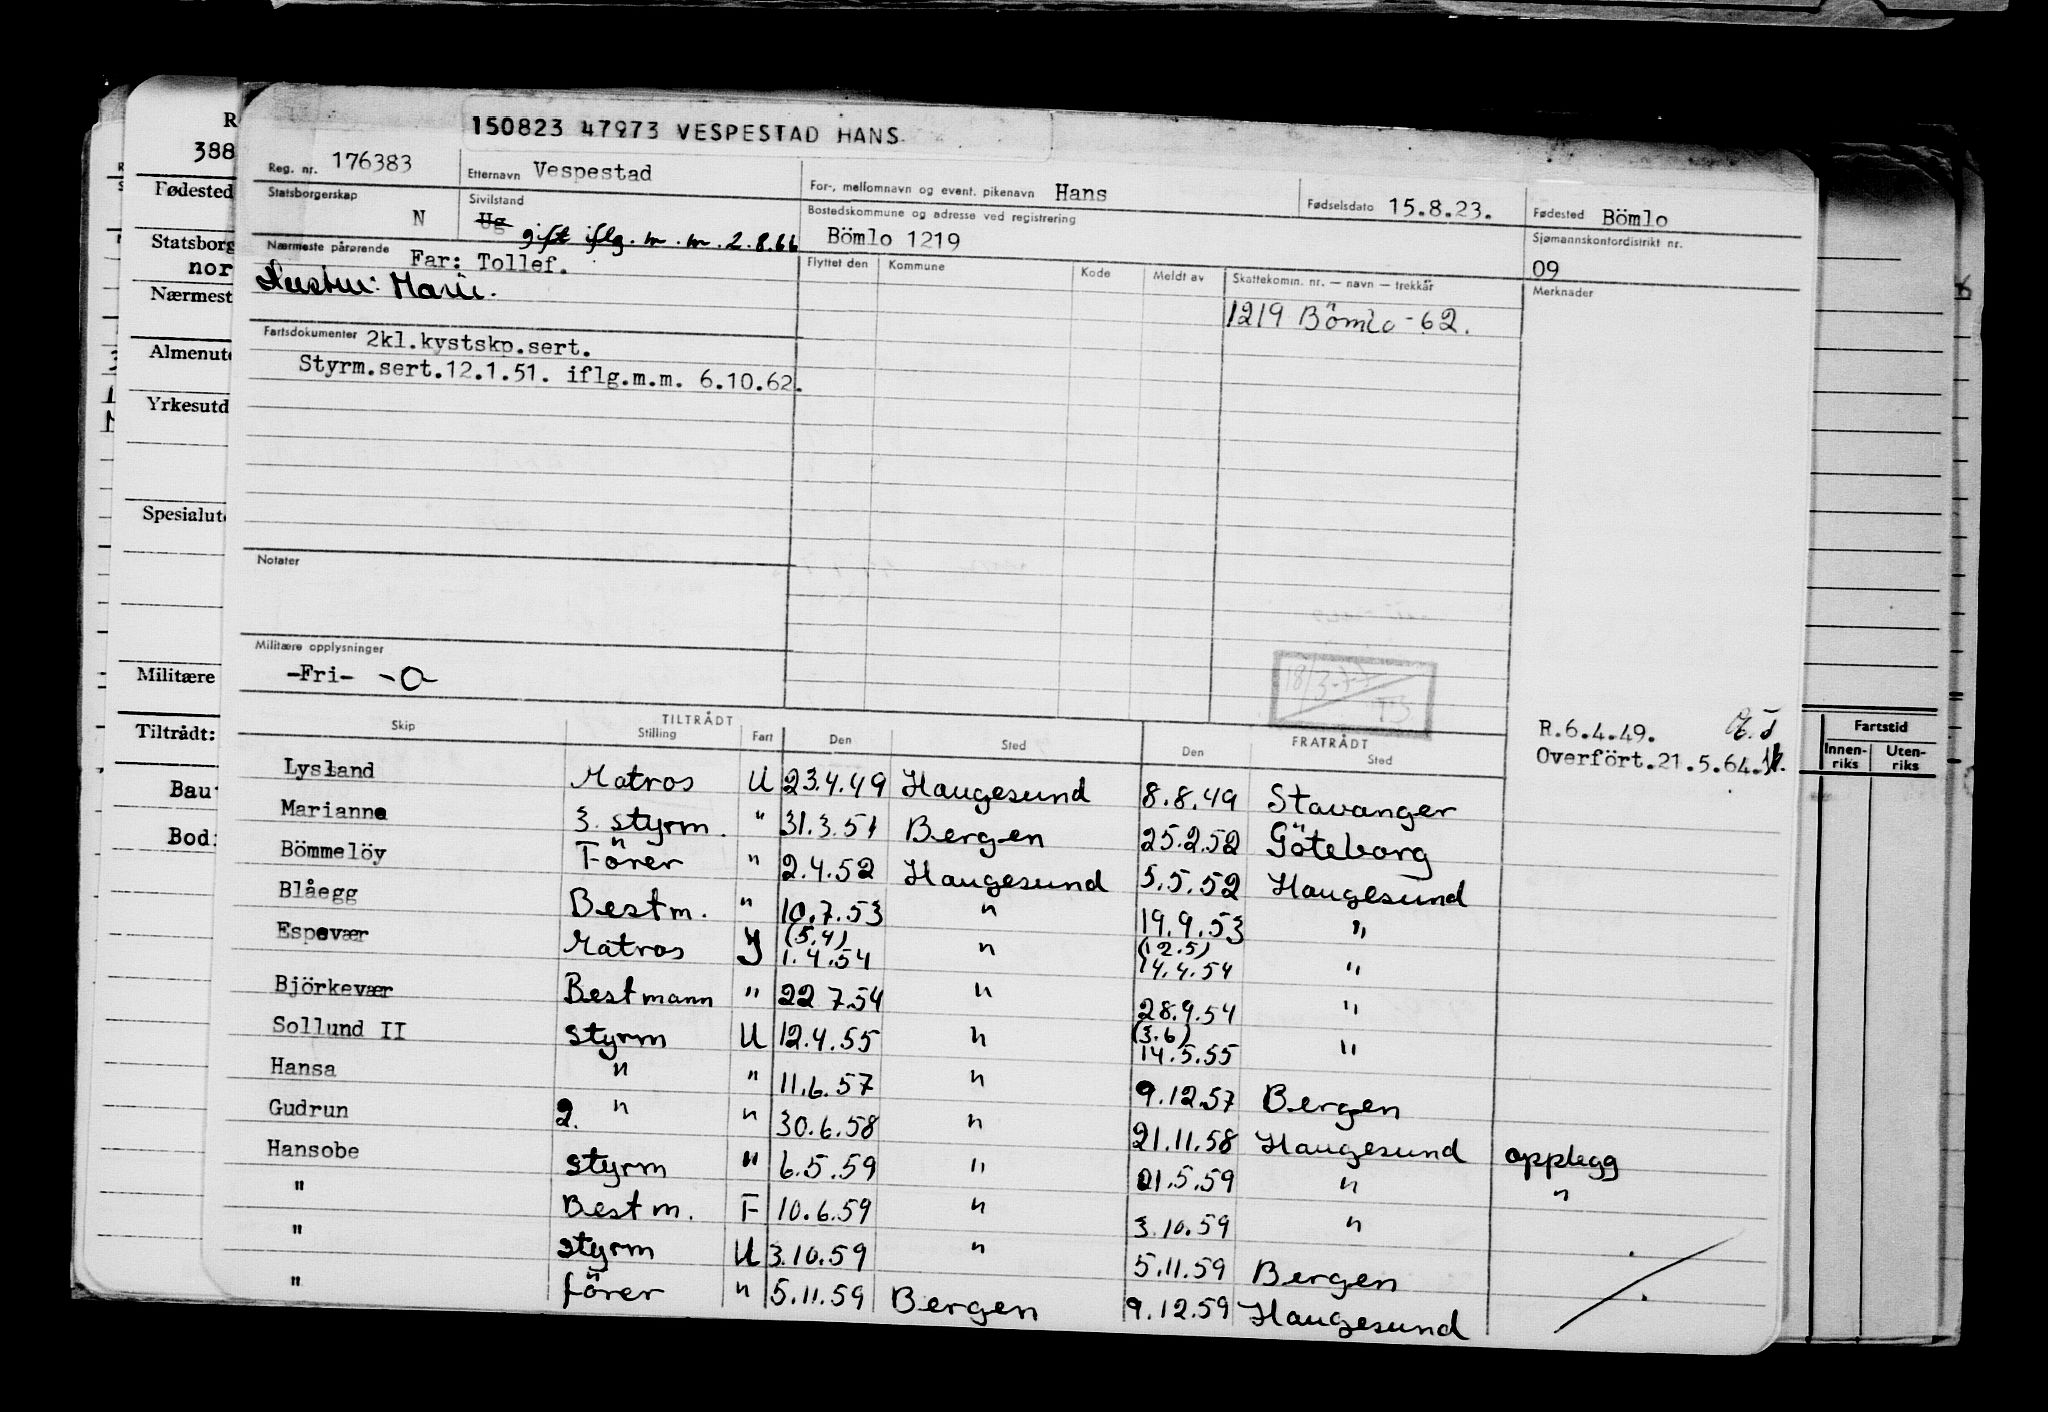 150823 47973 VESPESTAD HANS
Reg. nr. 176383 Etternavn Vespestad For-, mellomnavn og event. pikenavn Hans Fødselsdato 15.8.23. Fødested Bömlo
Statsborgerskap N Sivilstand Ug gift iflg. m.m. 2.8.66 Bostedskommune og adresse ved registrering Bömlo 1219 Sjømannskontordistrikt nr. 09
Nærmeste pårørende Far: Tollef. Flyttet den Kommune Kode Meldt av Skattekomm. nr. — navn — trekkår Merknader
Hustru: Marie. 1219 Bömlo -62.
Fartsdokumenter 2kl.kystskp.sert.
Styrm.sert.12.1.51. iflg.m.m. 6.10.62.
Notater
Militære opplysninger
-Fri-
18/3-77
R.6.4.49.
Overfört.21.5.64.
TILTRÅDT FRATRÅDT
Skip Stilling Fart Den Sted Den Sted
Lysland Matros U 23.4.49 Haugesund 8.8.49 Stavanger
Marianne 3. styrm. " 31.3.51 Bergen 25.2.52 Göteborg
Bömmelöy Förer " 2.4.52 Haugesund 5.5.52 Haugesund
Blåegg Bestm. " 10.7.53 " 19.9.53 "
(5.4) (12.5)
Espevær Matros J 1.4.54 " 14.4.54 "
Björkevær Bestmann " 22 7.54 " 28.9.54 "
(3.6)
Sollund II styrm U 12.4.55 " 14.5.55 "
Hansa " " 11.6.57 " 9.12.57 Bergen
Gudrun 2. " " 30.6.58 " 21.11.58 Haugesund opplegg
Hansobe styrm " 6.5.59 " 21.5.59 " "
" Bestm. F 10.6.59 " 3.10.59 "
" styrm U 3.10.59 " 5.11.59 Bergen
" förer " 5.11.59 Bergen 9.12.59 Haugesund
R
388
Fødested
Statsborg
nor
Nærmest
Almenut
Yrkesutd
Spesialut
Militære
Tiltrådt:
Bau
Bod
Fartstid
Innen-
riks
Uten-
riks